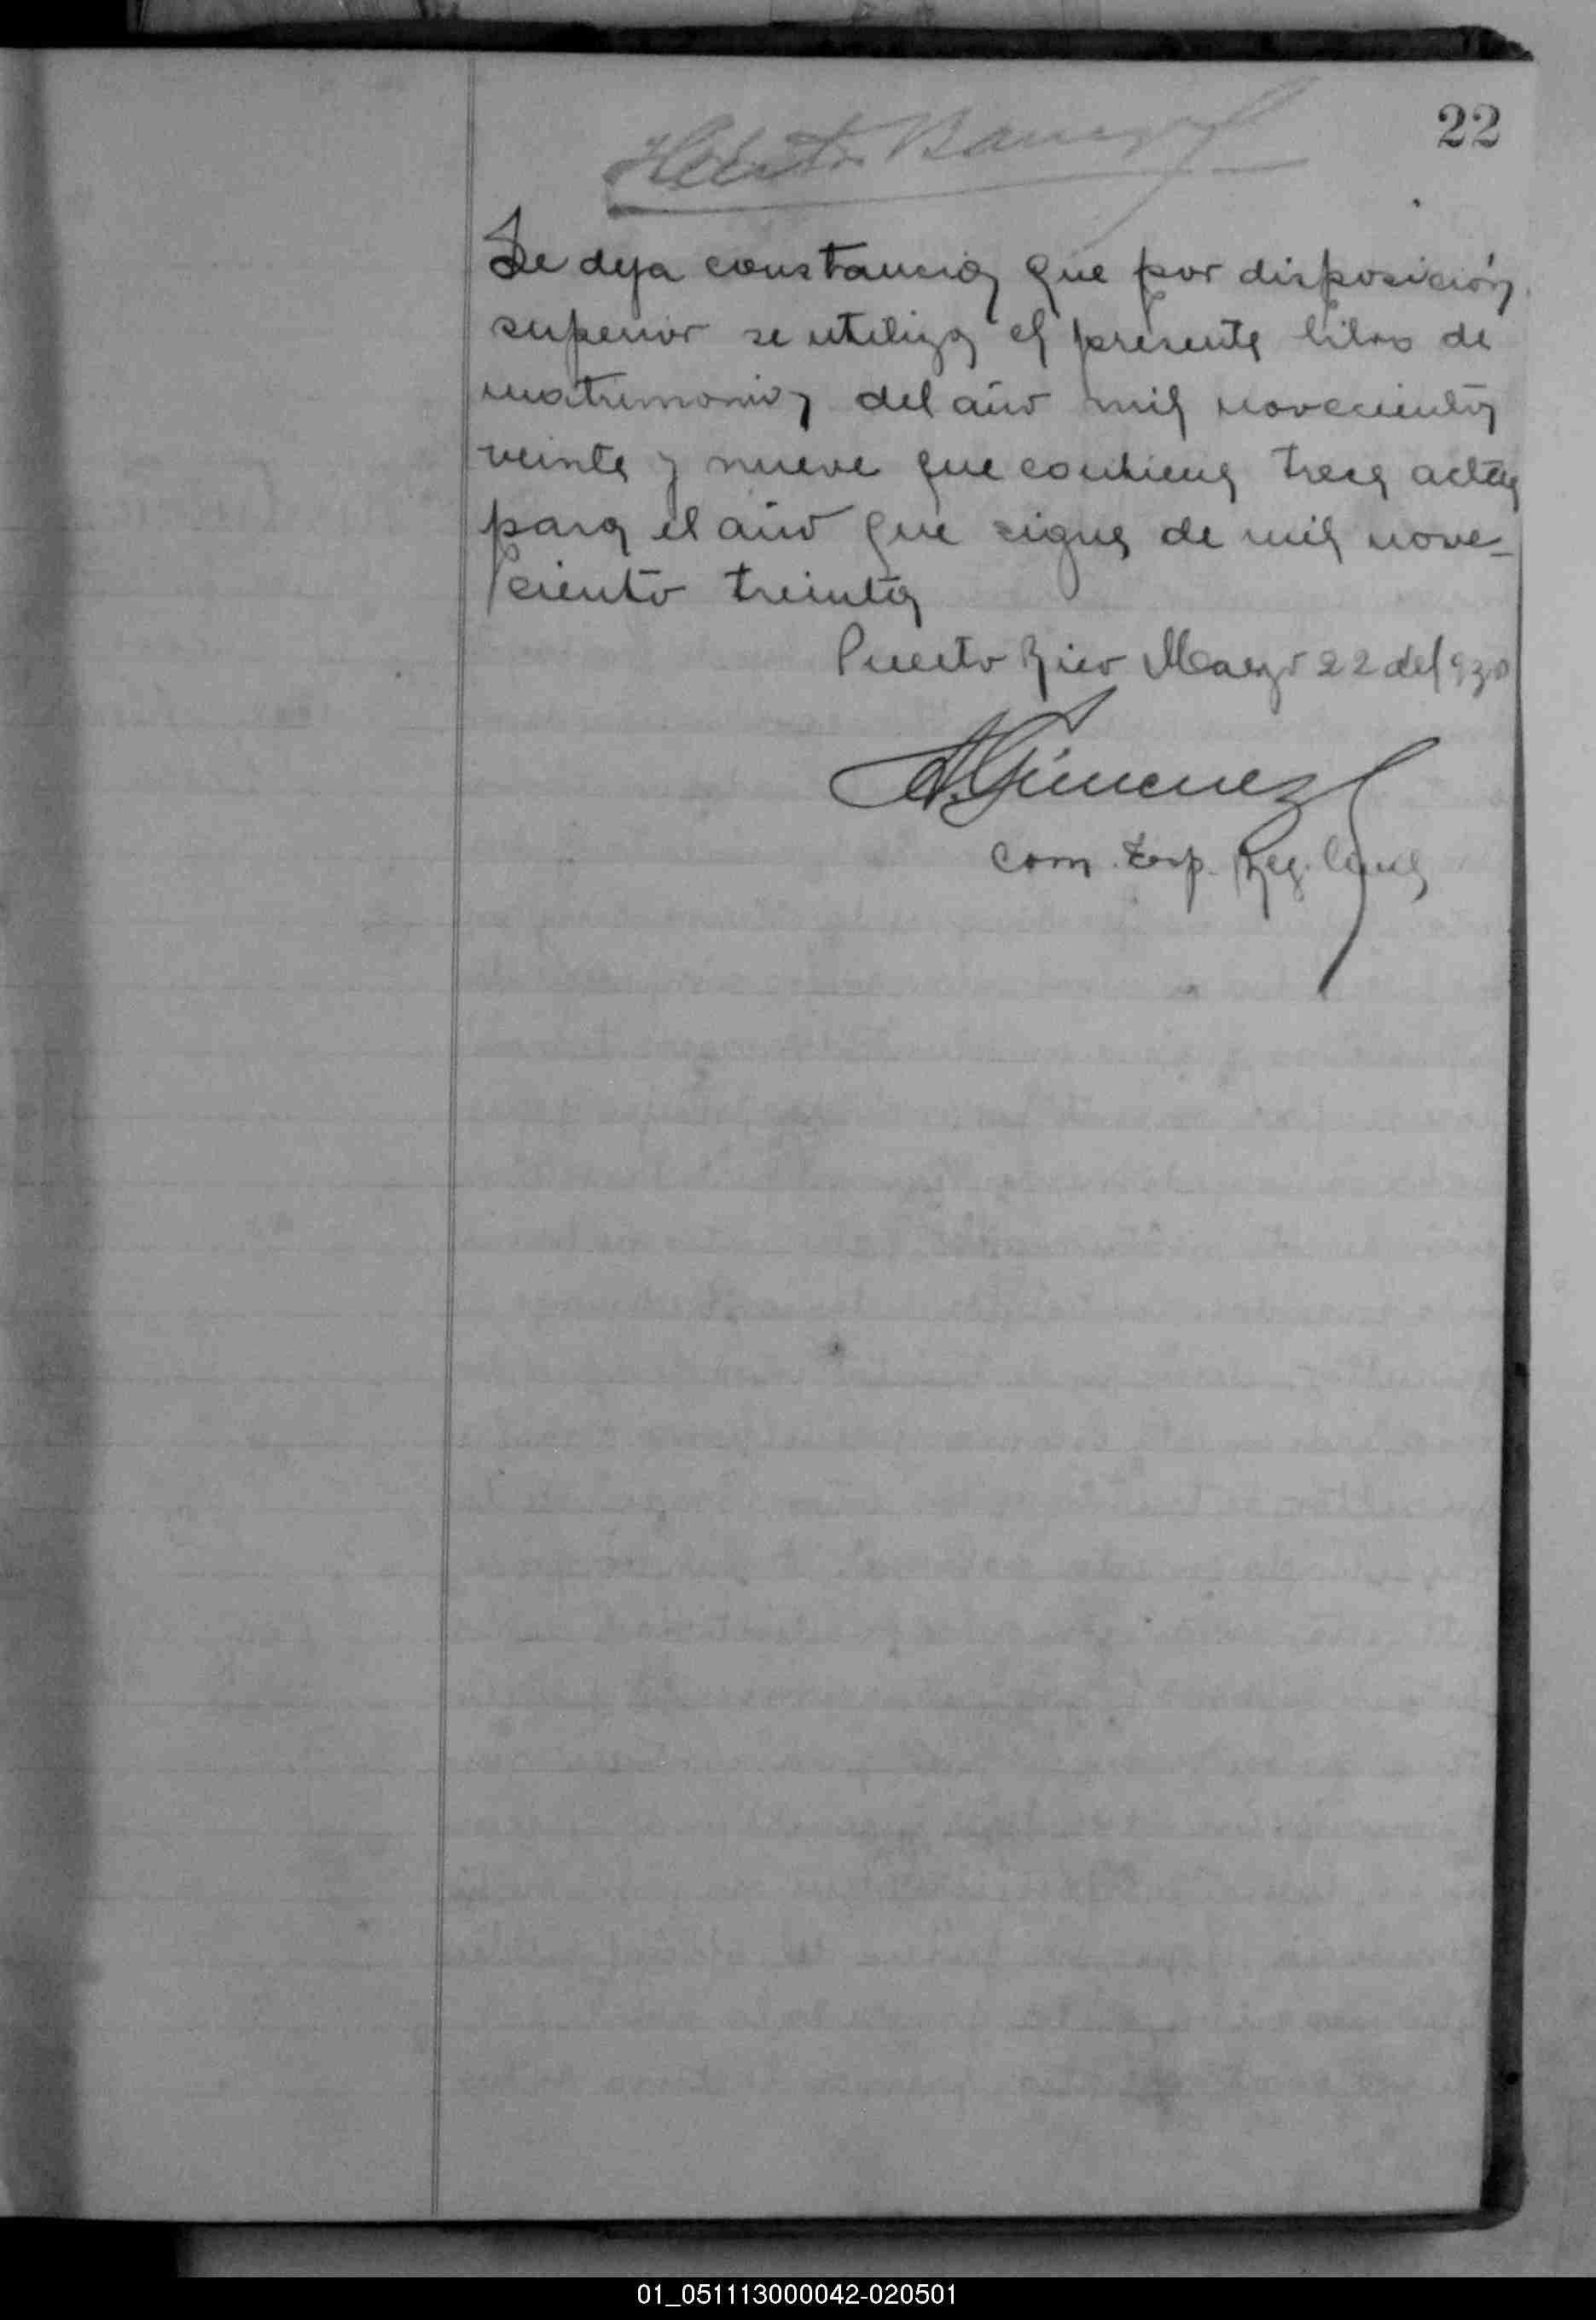 22
Se deja constancia que por disposición
superior se utiliza el presente libro de
matrimonios del año mil novecientos
veinte y nueve que contiene trece actas
para el año que sigue de mil nove-
ciento treinta
Puerto Rico Marzo 22 de 1930
A. Gimenez
Com. Reg. Civil
01_051113000042-020501